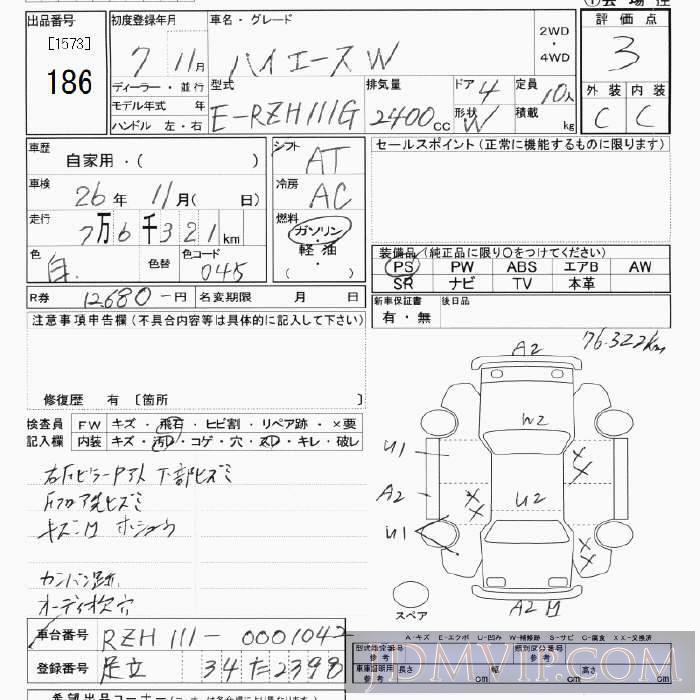 出品番号
[1573]
186
初度登録年月
7 11月
ディーラー・並行
モデル年式 年
ハンドル 左・右
車名・グレード
ハイエースW
2WD
・
4WD
型式
E-RZH111G
排気量
2400cc
ドア 4
形状 W
定員 10人
積載 kg
評価点
3
外装 内装
C C
車歴
自家用・( )
車検
26年 11月( 日)
走行
7万6千321km
色
色替
色コード
045
シフト
AT
冷房
AC
燃料
ガソリン
・
軽油
( )
R券 12680-円
名変期限 月 日
セールスポイント(正常に機能するものに限ります)
装備品/(純正品に限り○をつけてください)
PS PW ABS エアB AW
SR ナビ TV 本革
新車保証書
有・無
後日品
注意事項申告欄(不具合内容等は具体的に記入して下さい)
修復歴 有 〔箇所 〕
検査員
記入欄
FW キズ・飛石・ヒビ割・リペア跡・×要
内装 キズ・汚レ・コゲ・穴・スレ・キレ・破レ
キズ・凹 ホショウ
カンバン跡
オーディオ欠 穴
76.322km
A2
W2
U1
A2
U2
U1
XX
XX
XX
A2凹
スペア
車台番号 RZH111-0001042
登録番号 足立 34た2398
A-キズ E-エクボ U-凹み W-補修跡 S-サビ C-腐食 XX-交換済
型式指定番号
参考
類別区分番号
参考
車庫証明用
参考
長さ cm
幅 cm
高さ cm
JDMVIP.COM